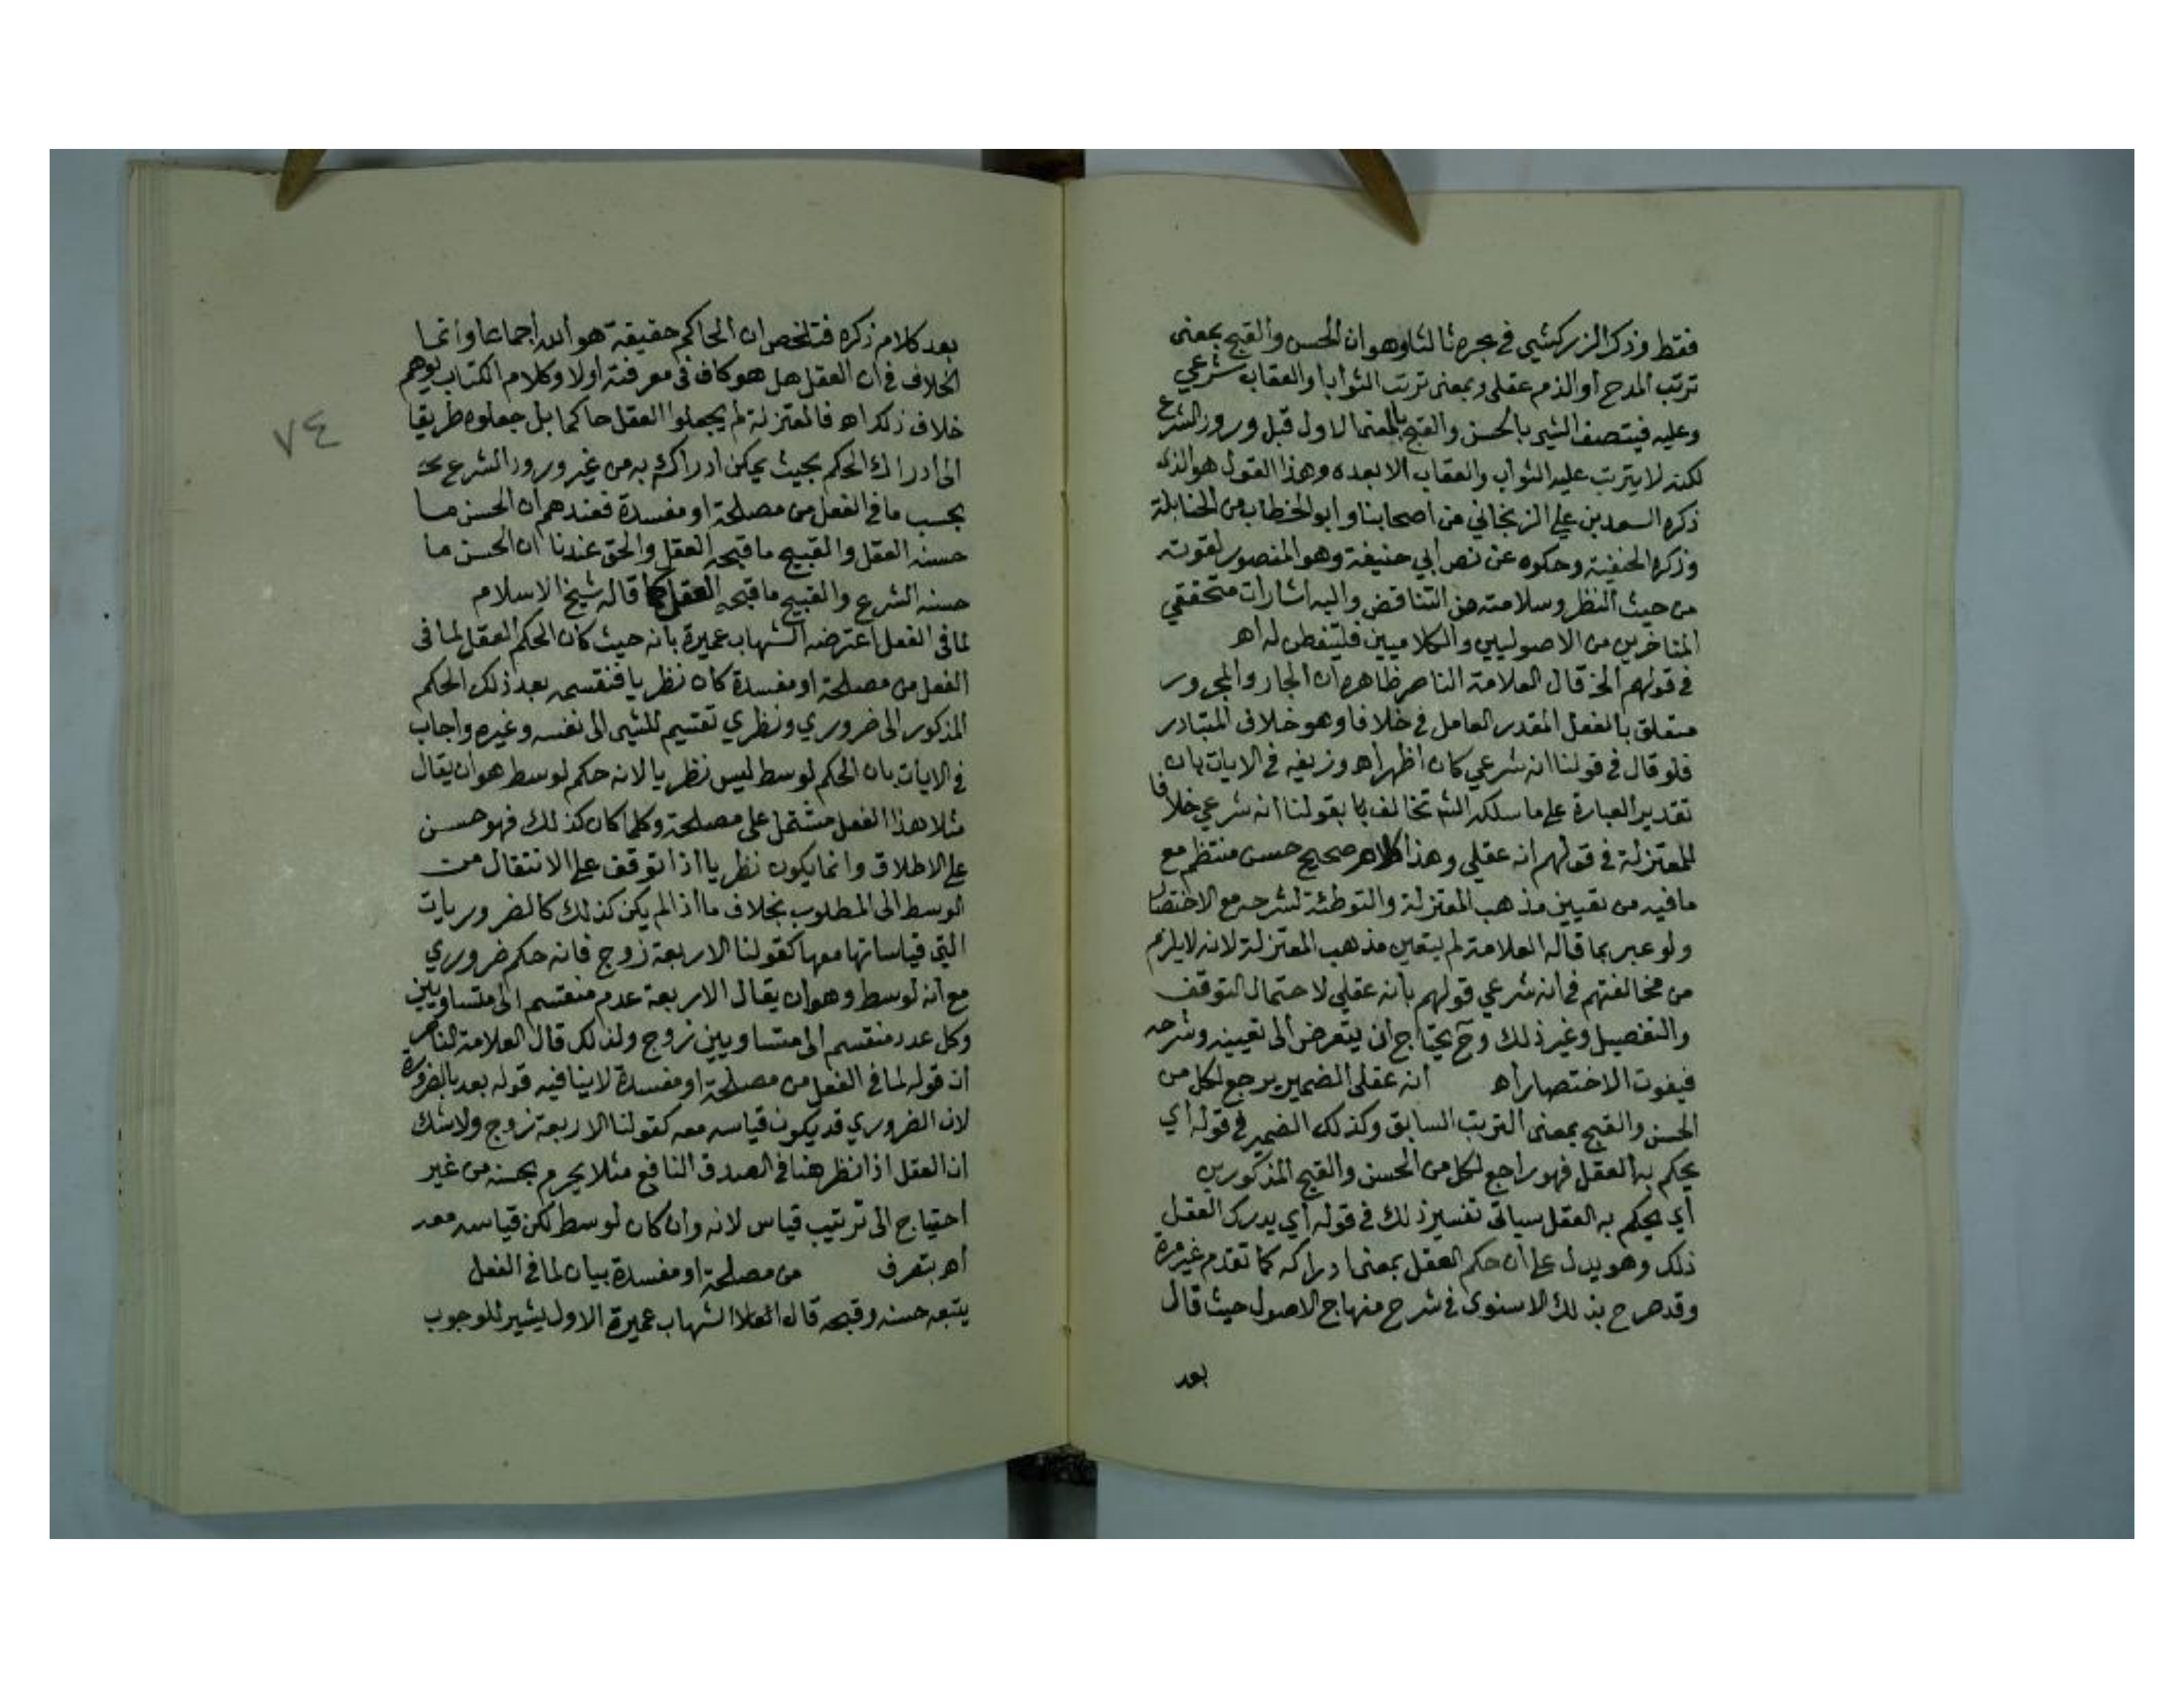 فقط وذكر الزركشي في بحره ثالثا وهو ان الحسن والقبح بمعنى
ترتب المدح او الذم عقلي وبمعنى ترتب الثواب او العقاب شرعي
وعليه فيتصف الشي بالحسن والقبح بالمعنى الاول قبل ورود الشرع
لكنه لا يترتب عليه الثواب والعقاب الا بعده وهذا القول هو الذي
ذكره السعد بن علي الزنجاني من اصحابنا وابو الخطاب من الحنابلة
وذكره الحنفية وحكوه عن نص ابي حنيفة وهو المنصور لقوته
من حيث النظر وسلامته من التناقض واليه اشارات متحققي
المتاخرين من الاصوليين والكلاميين فليتفطن له اه
في قولهم الخ قال العلامة الناصر ظاهره ان الجار والمجرور
متعلق بالفعل المقدر العامل في خلافا وهو خلاف المتبادر
فلو قال في قولنا انه شرعي كان اظهر اه وزيفه في الايات بان
تقدير العبارة على ما سلكه الشه تخالف با بقولنا انه شرعي خلافا
للمعتزلة في قولهم انه عقلي وهذا كلام صحيح حسن منتظم مع
ما فيه من تعيين مذهب المعتزلة والتوطئة لشرحه مع الاختصار
ولو عبر بما قاله العلامة لم يتعين مذهب المعتزلة لانه لا يلزم
من مخالفتهم في انه شرعي قولهم بانه عقلي لاحتمال التوقف
والتفصيل وغير ذلك وح يحتاج ان يتعرض الى تعيينه وشرحه
فيفوت الاختصار اه انه عقلي الضمير يرجع لكل من
الحسن والقبح بمعنى الترتب السابق وكذلك الضمير في قوله اي
يحكم به العقل فهو راجع لكل من الحسن والقبح المذكورين
اي يحكم به العقل سياتي تفسير ذلك في قوله اي يدرك العقل
ذلك وهو يدل على ان حكم العقل بمعنى ادراكه كما تقدم غير مرة
وقد صرح بذلك الاسنوي في شرح منهاج الاصول حيث قال
بعد
بعد كلام ذكره فتلخص ان الحاكم حقيقة هو الله اجماعا وانما
الخلاف في ان العقل هل هو كاف في معرفته اولا وكلام الكتاب يوهم
خلاف ذلك اه فالمعتزلة لم يجعلوا العقل حاكما بل جعلوه طريقا
الى ادراك الحكم بحيث يمكن ادراكه به من غير ورود الشرع
بحسب ما في الفعل من مصلحة او مفسدة فعندهم ان الحسن ما
حسنه العقل والقبيح ما قبحه العقل والحق عندنا ان الحسن ما
حسنه الشرع والقبيح ما قبحه العقل كما قاله شيخ الاسلام
لما في الفعل اعترضه الشهاب عميرة بانه حيث كان الحكم العقل لما في
الفعل من مصلحة او مفسدة كان نظريا فتقسيمه بعد ذلك الحكم
المذكور الى ضروري ونظري تقسيم للشي الى نفسه وغيره واجاب
في الايات بان الحكم لوسط ليس نظريا لانه حكم لوسط هو ان يقال
مثلا هذا الفعل مشتمل على مصلحة وكلما كان كذلك فهو حسن
على الاطلاق وانما يكون نظريا اذا توقف على الانتقال من
الوسط الى المطلوب بخلاف ما اذا لم يكن كذلك كالضروريات
التي قياساتها معها كقولنا الاربعة زوج فانه حكم ضروري
مع انه لوسط وهو ان يقال الاربعة عدم منقسم الى متساويين
وكل عدد منقسم الى متساويين زوج ولذلك قال العلامة الناصر
ان قوله لما في الفعل من مصلحة او مفسدة لا ينافيه قوله بعد بالضرورة
لان الضروري قد يكون قياسه معه كقولنا الاربعة زوج ولا شك
ان العقل اذا نظر هنا في الصدق النافع مثلا يجزم بحسنه من غير
احتياج الى ترتيب قياس لانه وان كان لوسط لكن قياسه معه
اه بتصرف من مصلحة او مفسدة بيان لما في الفعل
يتبعه حسنه وقبحه قال الشهاب عميرة الاول يشير للوجوب
٧٤